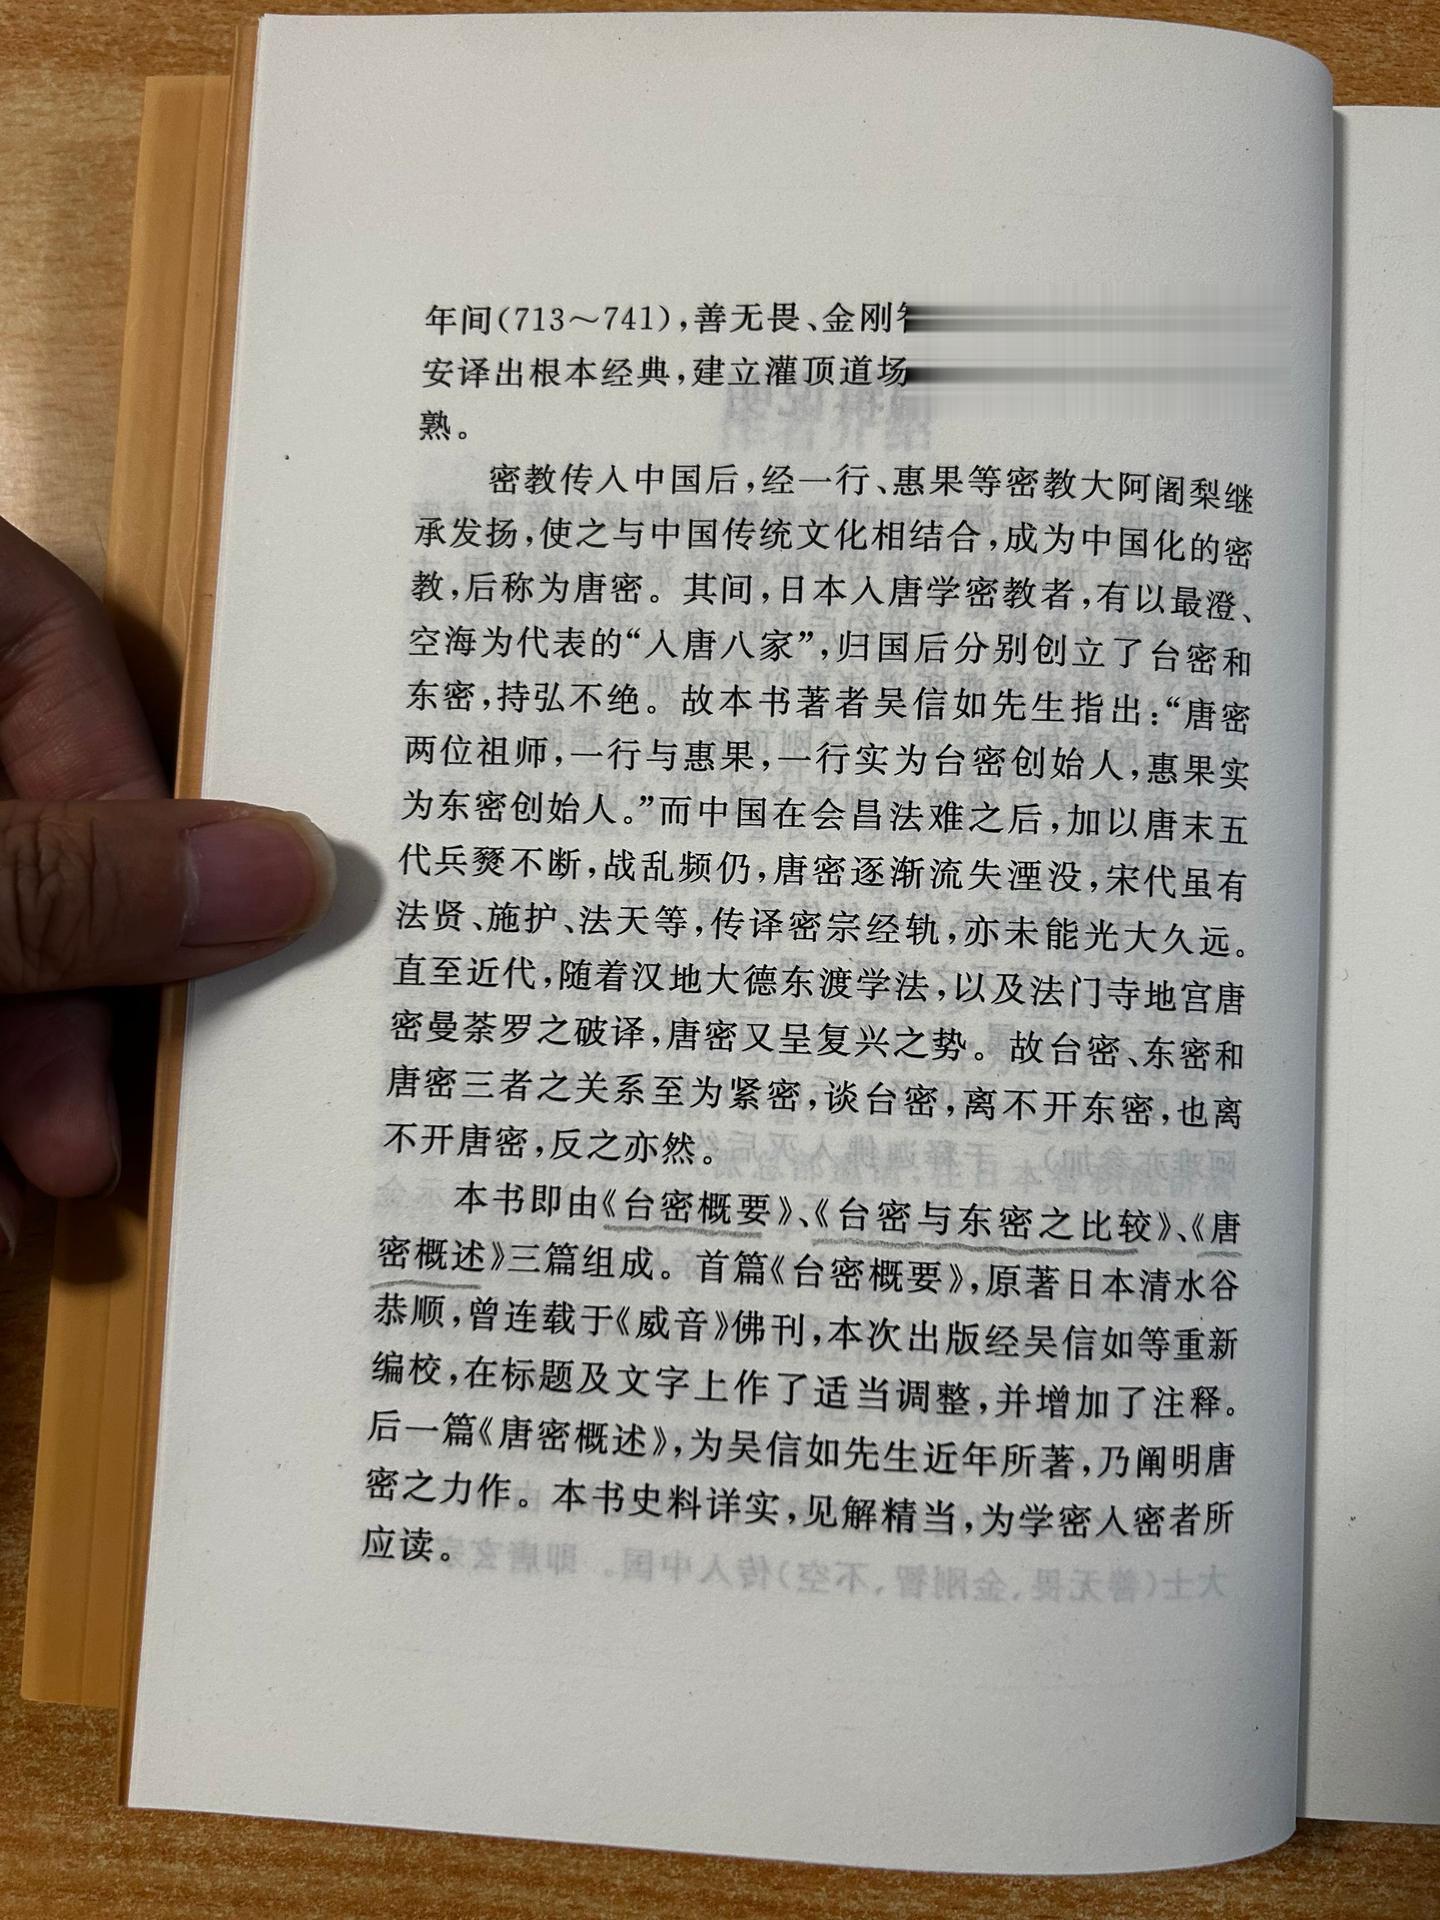 年间(713～741),善无畏、金刚
安译出根本经典,建立灌顶道场
熟。
密教传入中国后,经一行、惠果等密教大阿阇梨继
承发扬,使之与中国传统文化相结合,成为中国化的密
教,后称为唐密。其间,日本入唐学密教者,有以最澄、
空海为代表的“入唐八家”,归国后分别创立了台密和
东密,持弘不绝。故本书著者吴信如先生指出:“唐密
两位祖师,一行与惠果,一行实为台密创始人,惠果实
为东密创始人。”而中国在会昌法难之后,加以唐末五
代兵燹不断,战乱频仍,唐密逐渐流失湮没,宋代虽有
法贤、施护、法天等,传译密宗经轨,亦未能光大久远。
直至近代,随着汉地大德东渡学法,以及法门寺地宫唐
密曼荼罗之破译,唐密又呈复兴之势。故台密、东密和
唐密三者之关系至为紧密,谈台密,离不开东密,也离
不开唐密,反之亦然。
本书即由《台密概要》、《台密与东密之比较》、《唐
密概述》三篇组成。首篇《台密概要》,原著日本清水谷
恭顺,曾连载于《威音》佛刊,本次出版经吴信如等重新
编校,在标题及文字上作了适当调整,并增加了注释。
后一篇《唐密概述》,为吴信如先生近年所著,乃阐明唐
密之力作。本书史料详实,见解精当,为学密入密者所
应读。